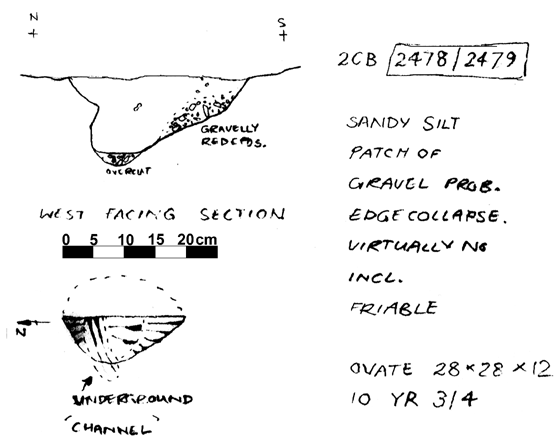 N
S
2CB 2478/2479
GRAVELLY
REDEPOS.
OVERCUT
WEST FACING SECTION
0 5 10 15 20cm
N
UNDERGROUND
(CHANNEL)
SANDY SILT
PATCH OF
GRAVEL PROB.
EDGE COLLAPSE.
VIRTUALLY NO
INCL.
FRIABLE
OVATE 28 × 28 × 12
10 YR 3/4